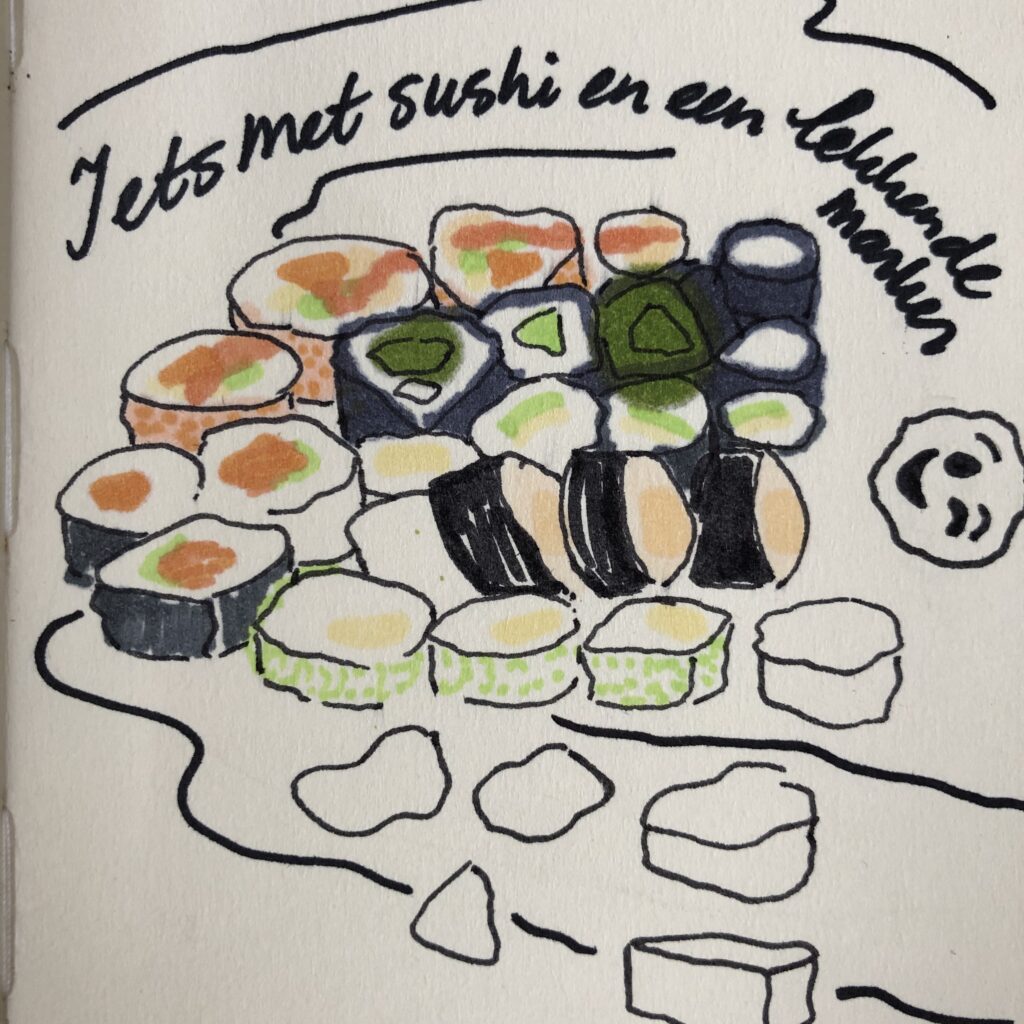 Iets met sushi en een lekkende
marker